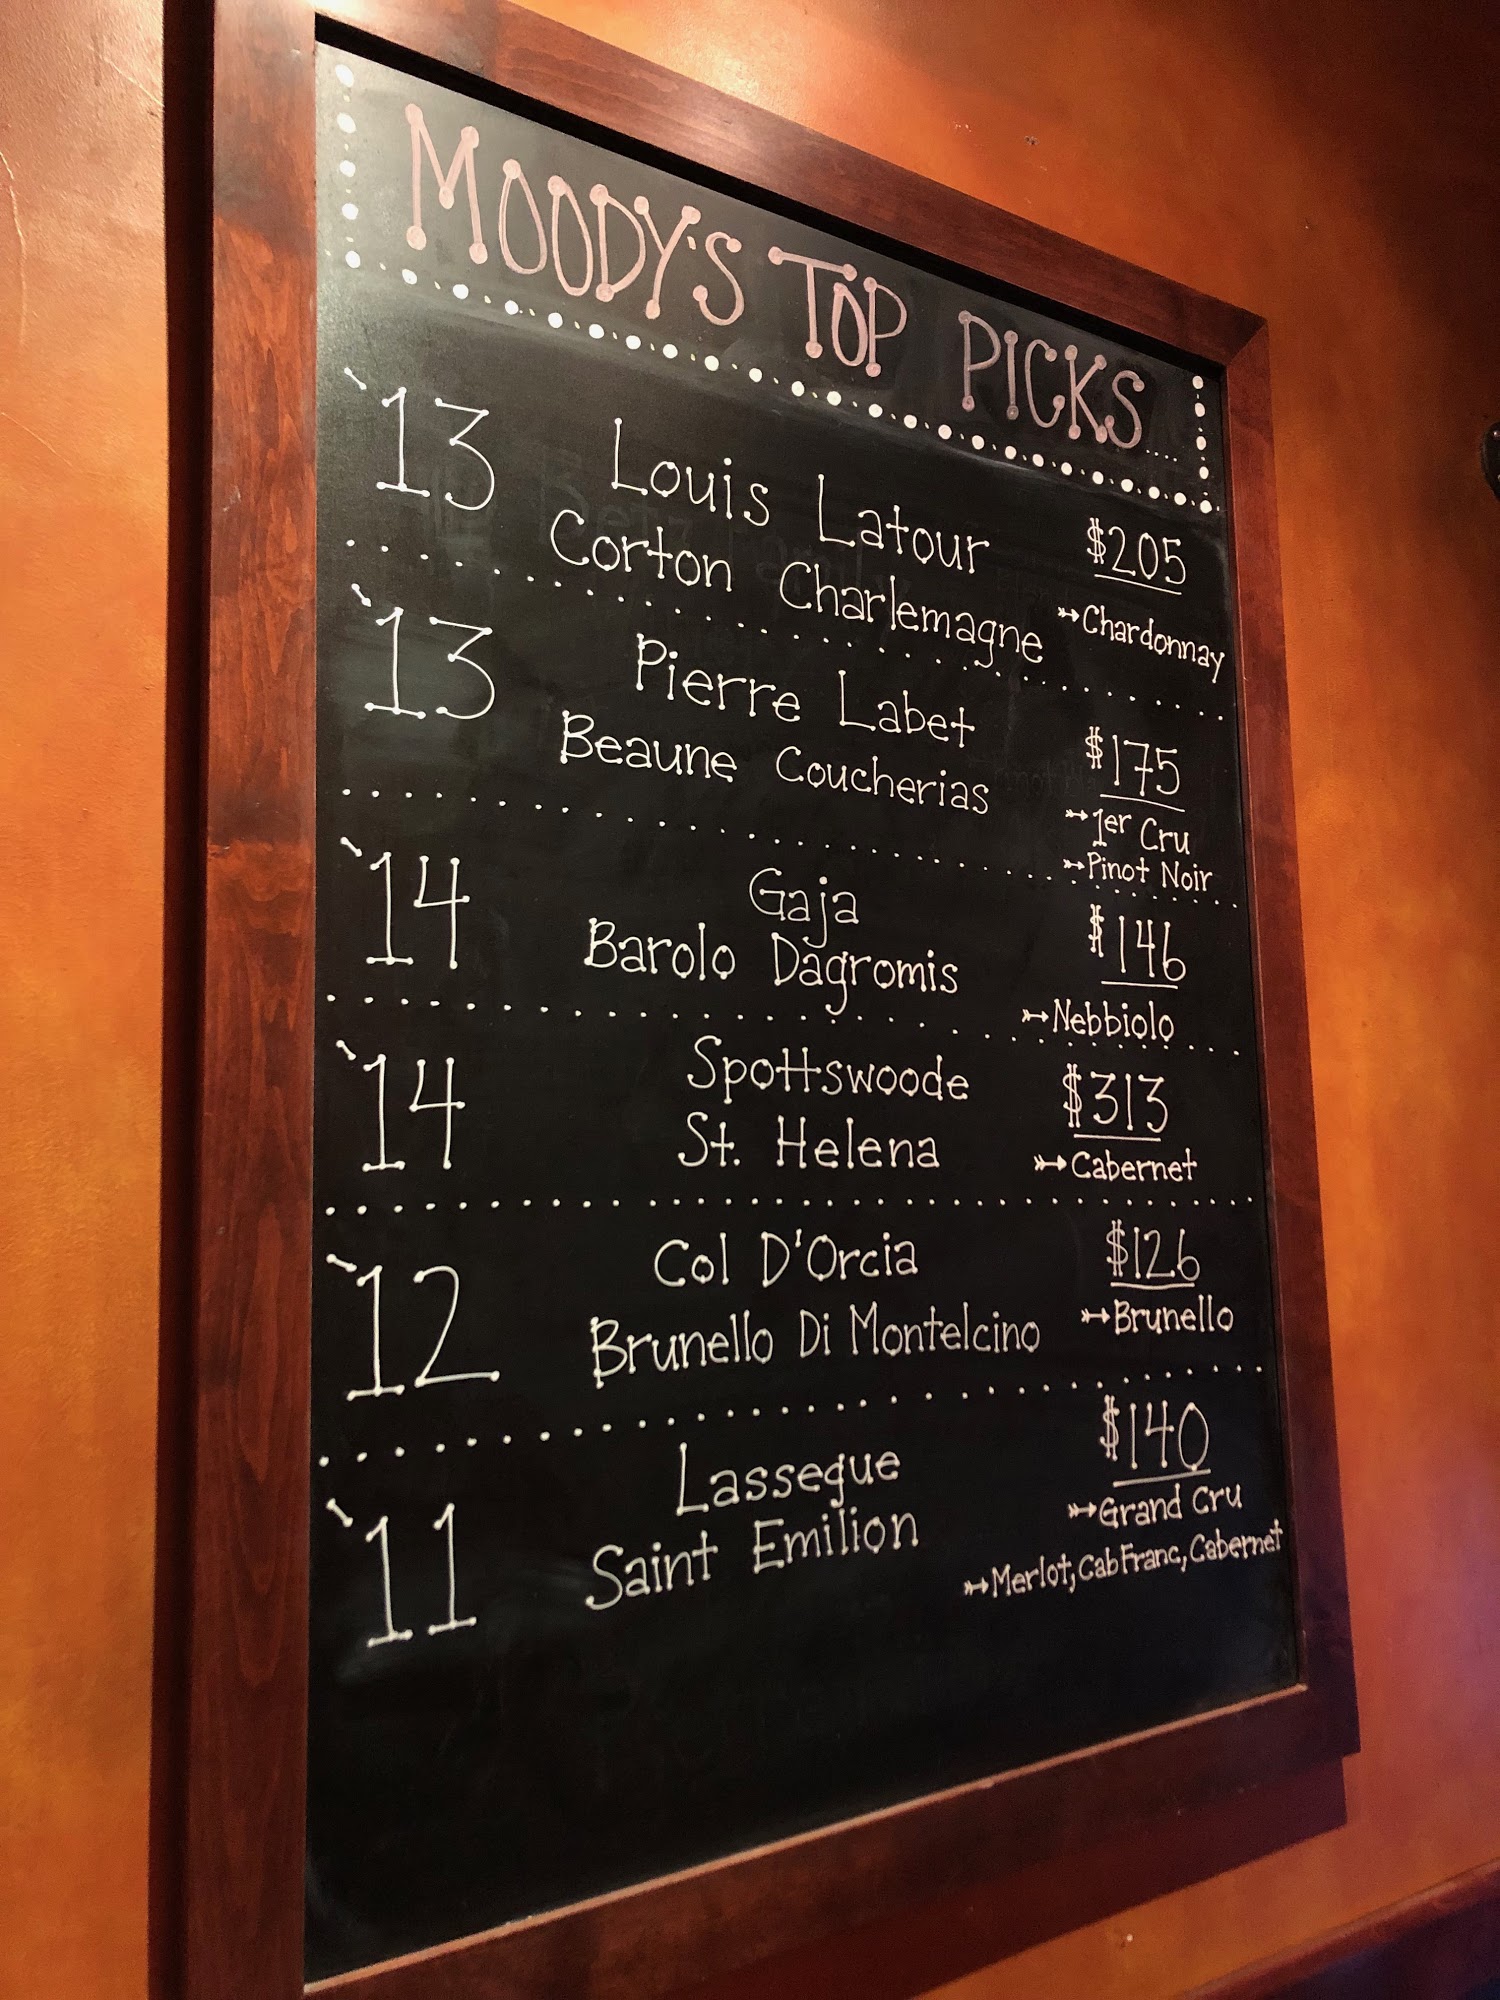 MOODY'S TOP PICKS....
'13 Louis Latour $205
Corton Charlemagne → Chardonnay
'13 Pierre Labet $175
Beaune Coucherias → 1er Cru
→ Pinot Noir
'14 Gaja $146
Barolo Dagromis → Nebbiolo
'14 Spottswoode $313
St. Helena → Cabernet
'12 Col D'Orcia $126
Brunello Di Montelcino → Brunello
'11 Lassegue $140
Saint Emilion → Grand Cru
→ Merlot, Cab Franc, Cabernet